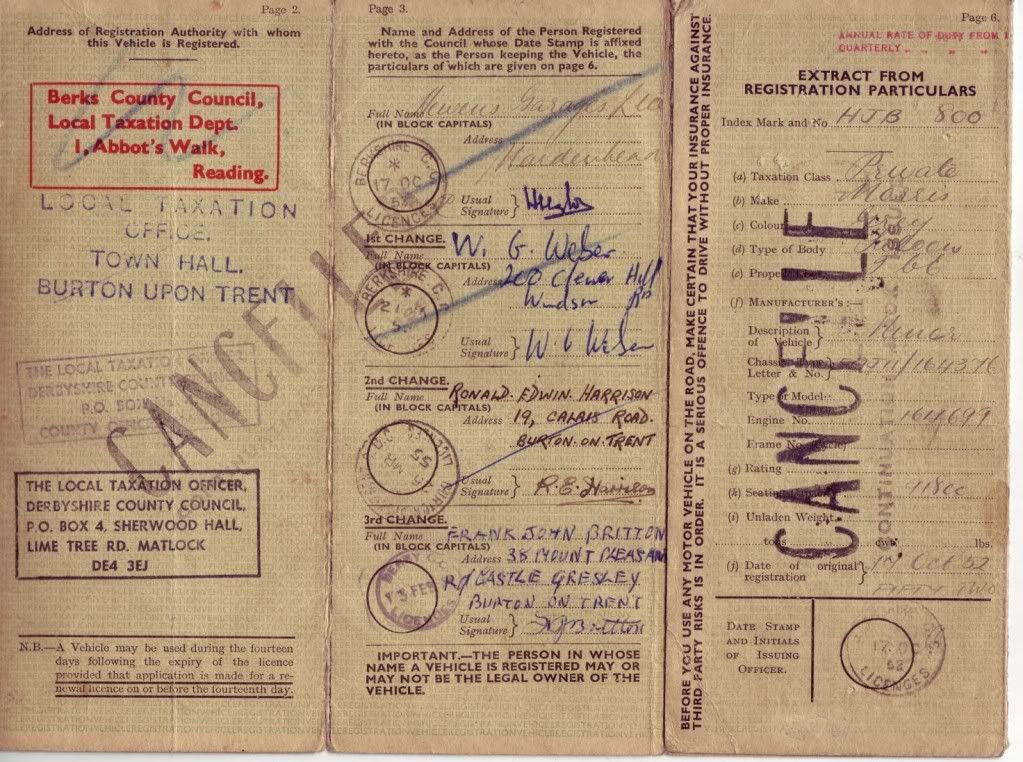 Page 2.
Address of Registration Authority with whom
this Vehicle is Registered.
Berks County Council,
Local Taxation Dept.
1, Abbot's Walk,
Reading.
LOCAL TAXATION
OFFICE.
TOWN HALL.
BURTON UPON TRENT
THE LOCAL TAXATIO
DERBYSHIRE COUNT
P.O. BOX
COUNTY OFFICES
CANCELLE
THE LOCAL TAXATION OFFICER,
DERBYSHIRE COUNTY COUNCIL,
P.O. BOX 4, SHERWOOD HALL,
LIME TREE RD. MATLOCK
DE4 3EJ
N.B.—A Vehicle may be used during the fourteen
days following the expiry of the licence
provided that application is made for a re-
newal licence on or before the fourteenth day.
Page 3.
Name and Address of the Person Registered
with the Council whose Date Stamp is affixed
hereto, as the Person keeping the Vehicle, the
particulars of which are given on page 6.
Full Name Garages Ltd
(IN BLOCK CAPITALS)
Address
Maidenhead
BERKSHIRE C.C.
17 OC
52
LICENCES
Usual
Signature }
1st CHANGE. W. G. Weber
Full Name
(IN BLOCK CAPITALS)
Address 200 Clewer Hill
Windsor
BERKSHIRE C.C.
Usual
Signature } W. G. Weber
2nd CHANGE. RONALD. EDWIN. HARRISON
Full Name
(IN BLOCK CAPITALS)
Address 19, CALAIS ROAD.
BURTON-ON-TRENT
55
Usual
Signature } R.E. Harrison
3rd CHANGE. FRANK JOHN BRITTON
Full Name
(IN BLOCK CAPITALS)
Address 38 MOUNT PLEASAN
RD CASTLE GRESLEY
BURTON ON TRENT
FEB
LICENCES
Usual
Signature } F.J. Britton
IMPORTANT.—THE PERSON IN WHOSE
NAME A VEHICLE IS REGISTERED MAY OR
MAY NOT BE THE LEGAL OWNER OF THE
VEHICLE.
BEFORE YOU USE ANY MOTOR VEHICLE ON THE ROAD, MAKE CERTAIN THAT YOUR INSURANCE AGAINST
THIRD PARTY RISKS IS IN ORDER. IT IS A SERIOUS OFFENCE TO DRIVE WITHOUT PROPER INSURANCE.
Page 6.
ANNUAL RATE OF DUTY FROM 1
QUARTERLY
EXTRACT FROM
REGISTRATION PARTICULARS
Index Mark and No. HJB 800
(a) Taxation Class Private
(b) Make Morris
(c) Colour Grey
(d) Type of Body
(e) Prope
(f) MANUFACTURER'S:—
Description
of Vehicle } Minor
Chassis Type
Letter & No. } 164376
Type or Model
Engine No.
Frame No.
(g) Rating
(h) Seating
(i) Unladen Weight
tons cwt. lbs.
(j) Date of original
registration } 17 Oct 52
FIFTY TWO
CANCELLE
CONTINUATION
DATE STAMP
AND INITIALS
OF ISSUING
OFFICER.
17 O
52
LICENCES
REGISTRATIONVEHICLEREGISTRATIONVEHICLEREGISTRATION